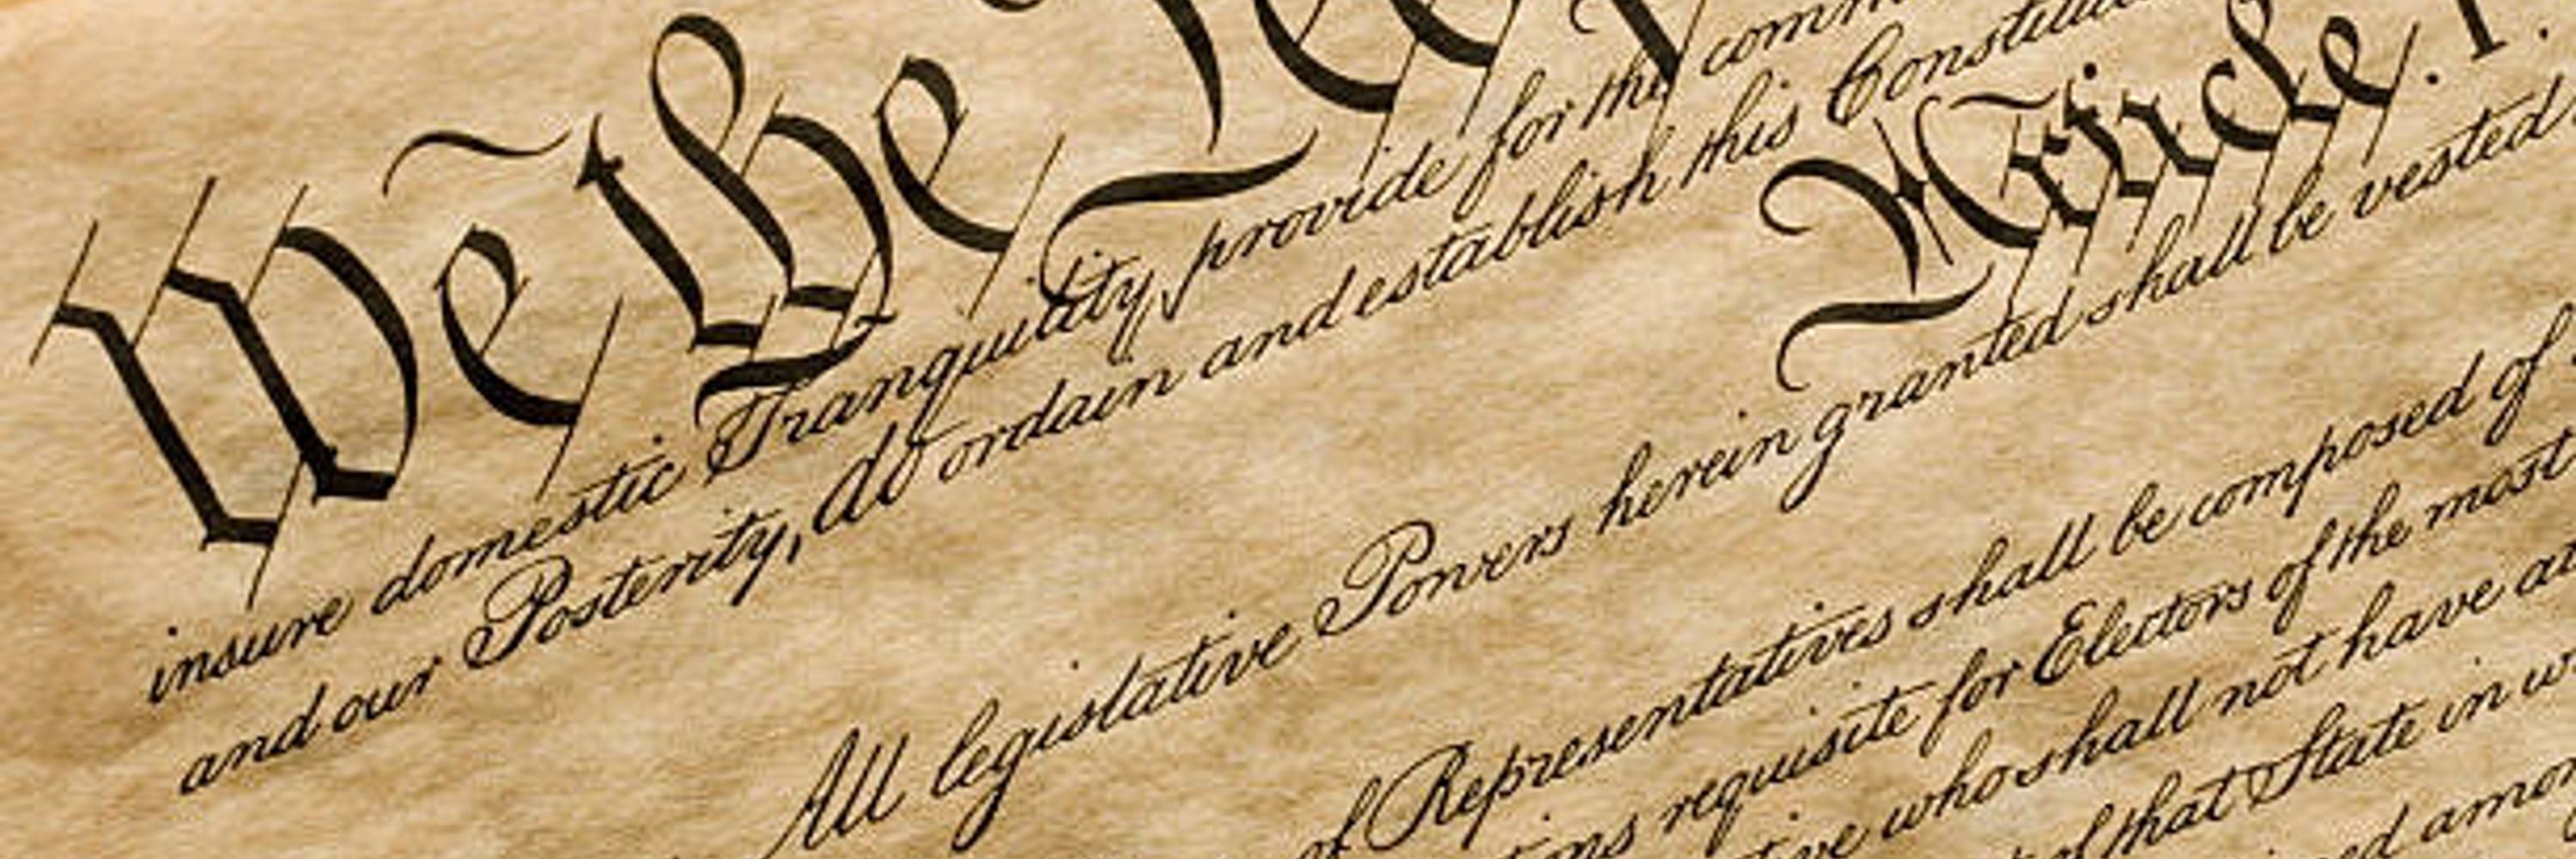 We the
insure domestic Tranquility, provide for the
and our Posterity, do ordain and establish this
Article. I.
All legislative Powers herein granted shall be vested
of Representatives shall be composed of
requisite for Electors of the most
who shall not have
of that State in